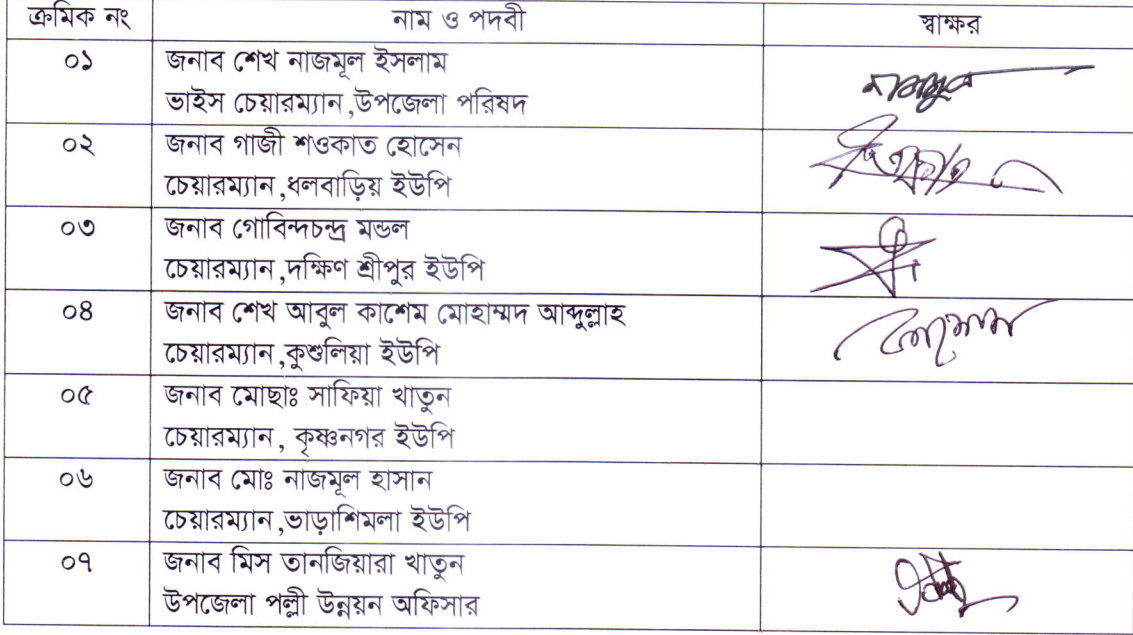 ক্রমিক নং নাম ও পদবী স্বাক্ষর
০১ জনাব শেখ নাজমূল ইসলাম
ভাইস চেয়ারম্যান,উপজেলা পরিষদ
০২ জনাব গাজী শওকাত হোসেন
চেয়ারম্যান,ধলবাড়িয় ইউপি
০৩ জনাব গোবিন্দচন্দ্র মন্ডল
চেয়ারম্যান,দক্ষিণ শ্রীপুর ইউপি
০৪ জনাব শেখ আবুল কাশেম মোহাম্মদ আব্দুল্লাহ
চেয়ারম্যান,কুশুলিয়া ইউপি
০৫ জনাব মোছাঃ সাফিয়া খাতুন
চেয়ারম্যান, কৃষ্ণনগর ইউপি
০৬ জনাব মোঃ নাজমূল হাসান
চেয়ারম্যান,ভাড়াশিমলা ইউপি
০৭ জনাব মিস তানজিয়ারা খাতুন
উপজেলা পল্লী উন্নয়ন অফিসার